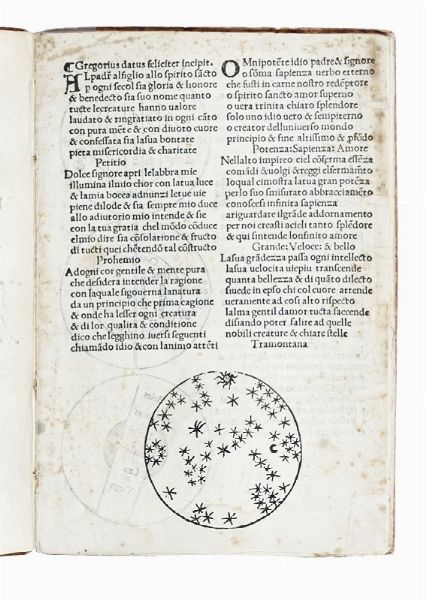 Gregorius datus feliciter incipit.
ALpadř alfiglio allo spirito sãcto
p ogni secol sia gloria & honore
& benedecto sia suo nome quanto
tutte lecreature hanno ualore
laudato & ringratiato in ogni cãto
con pura mẽte & con diuoto cuore
& confessata sia lasua bontate
pieta misericordia & charitate
Petitio
Dolce signore apri lelabbra mie
illumina ilmio chor con latua luce
& lamia bocea adnunzi letue uie
piene dilode & sia sempre mio duce
allo adiutorio mio intende & sie
con la tua gratia chel mõdo cõduce
elmio dire sia cõsolatione & fructo
di tucti quei chẽtendõ tal cõstructo
Prohemio
Adogni cor gentile & mente pura
che desidera intender la ragione
con laquale sigouerna lanatura
da un principio che prima cagione
& onde ha lesser ogni creatura
& di lor qualita & conditione
dico che legghino iuersi seguenti
chiamãdo idio & con lanimo attẽti
OMnipotẽte idio padre & signore
o sõma sapienza uerbo etterno
che fusti in carne nostro redẽptore
o spirito sancto amor superno
o uera trinita chiaro splendore
solo uno idio uero & sempiterno
o creator delluniuerso mondo
principio & fine altissimo & pfõdo
Potenza: Sapienza: Amore
Nellalto impireo ciel cõferma essẽza
com ãdi & uolgi & reggi elfermamẽto
loqual cimostra latua gran potẽza
perlo suo smisurato abbracciamẽto
conoscesi infinita sapienza
ariguardare ilgrãde addornamento
per noi creasti acieli tanto splẽdore
& qui sintende lonfinito amore
Grande: Veloce: & bello
Lasua grãdezza passa ogni intellecto
lasua uelocita uiepiu transcende
quanta bellezza & di quãto dilecto
siuede in epso chi col cuore attende
ueraniente ad cos alto rispecto
lalma gentil damor tucta saccende
disando poter salire ad quelle
nobili creature & chiare stelle
Tramontana